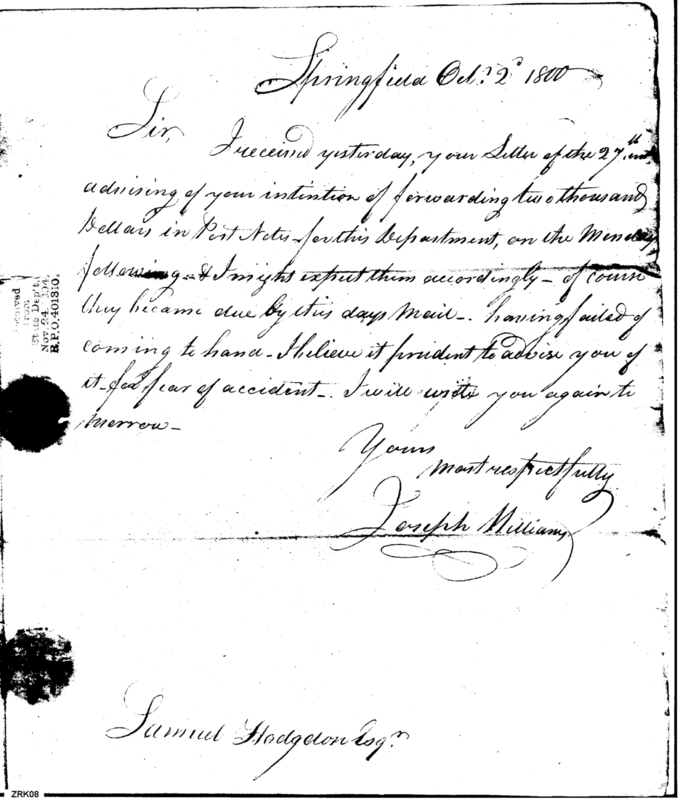 Springfield Octr. 2d 1800
Sir,
I received yesterday, your Letter of the 27th ult.
advising of your intention of forwarding two thousand
Dollars in Post Notes for this Department, on the Monday
following & I might expect them accordingly - of course
they became due by this days Mail -. having failed of
coming to hand - I believe it prudent to advise you of
it - for fear of accident -. I will write you again to
morrow -
Yours
most respectfully
Joseph Williams
Samuel Hodgdon Esqr.
Received
from
State Dep't.
Nov. 24, 1894.
R.P.O. 401310.
ZRK08